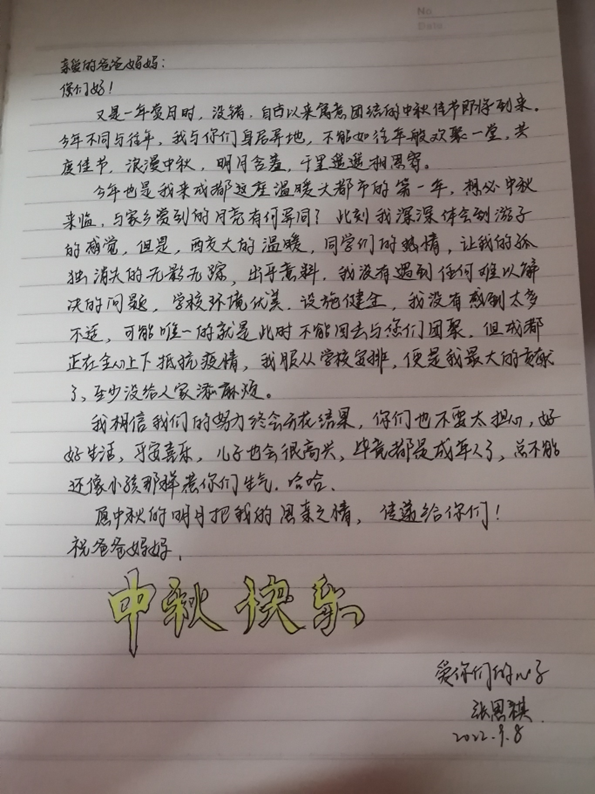 No.
Date
亲爱的爸爸妈妈：
你们好！
又是一年赏月时，没错，自古以来寓意团结的中秋佳节即将到来。
今年不同与往年，我与你们身居异地，不能如往年般欢聚一堂，共
度佳节，浪漫中秋，明月含羞，千里遥遥相思寄。
今年也是我来成都这座温暖大都市的第一年，想必中秋
来临，与家乡赏到的月亮有何异同？此刻我深深体会到游子
的感觉，但是，西交大的温暖，同学们的热情，让我的孤
独消失的无影无踪，出乎意料，我没有遇到任何难以解
决的问题，学校环境优美，设施健全，我没有感到太多
不适，可能唯一的就是此时不能回去与您们团聚，但成都
正在全心上下抵抗疫情，我服从学校安排，便是我最大的贡献
了，至少没给人家添麻烦。
我相信我们的努力终会开花结果，你们也不要太担心，好
好生活，平安喜乐，儿子也会很高兴，毕竟都是成年人了，总不能
还像小孩那样惹你们生气，哈哈。
愿中秋的明月把我的思亲之情，传递给你们！
祝爸爸妈妈，
中秋快乐
爱你们的儿子
张思祺
2022.9.8